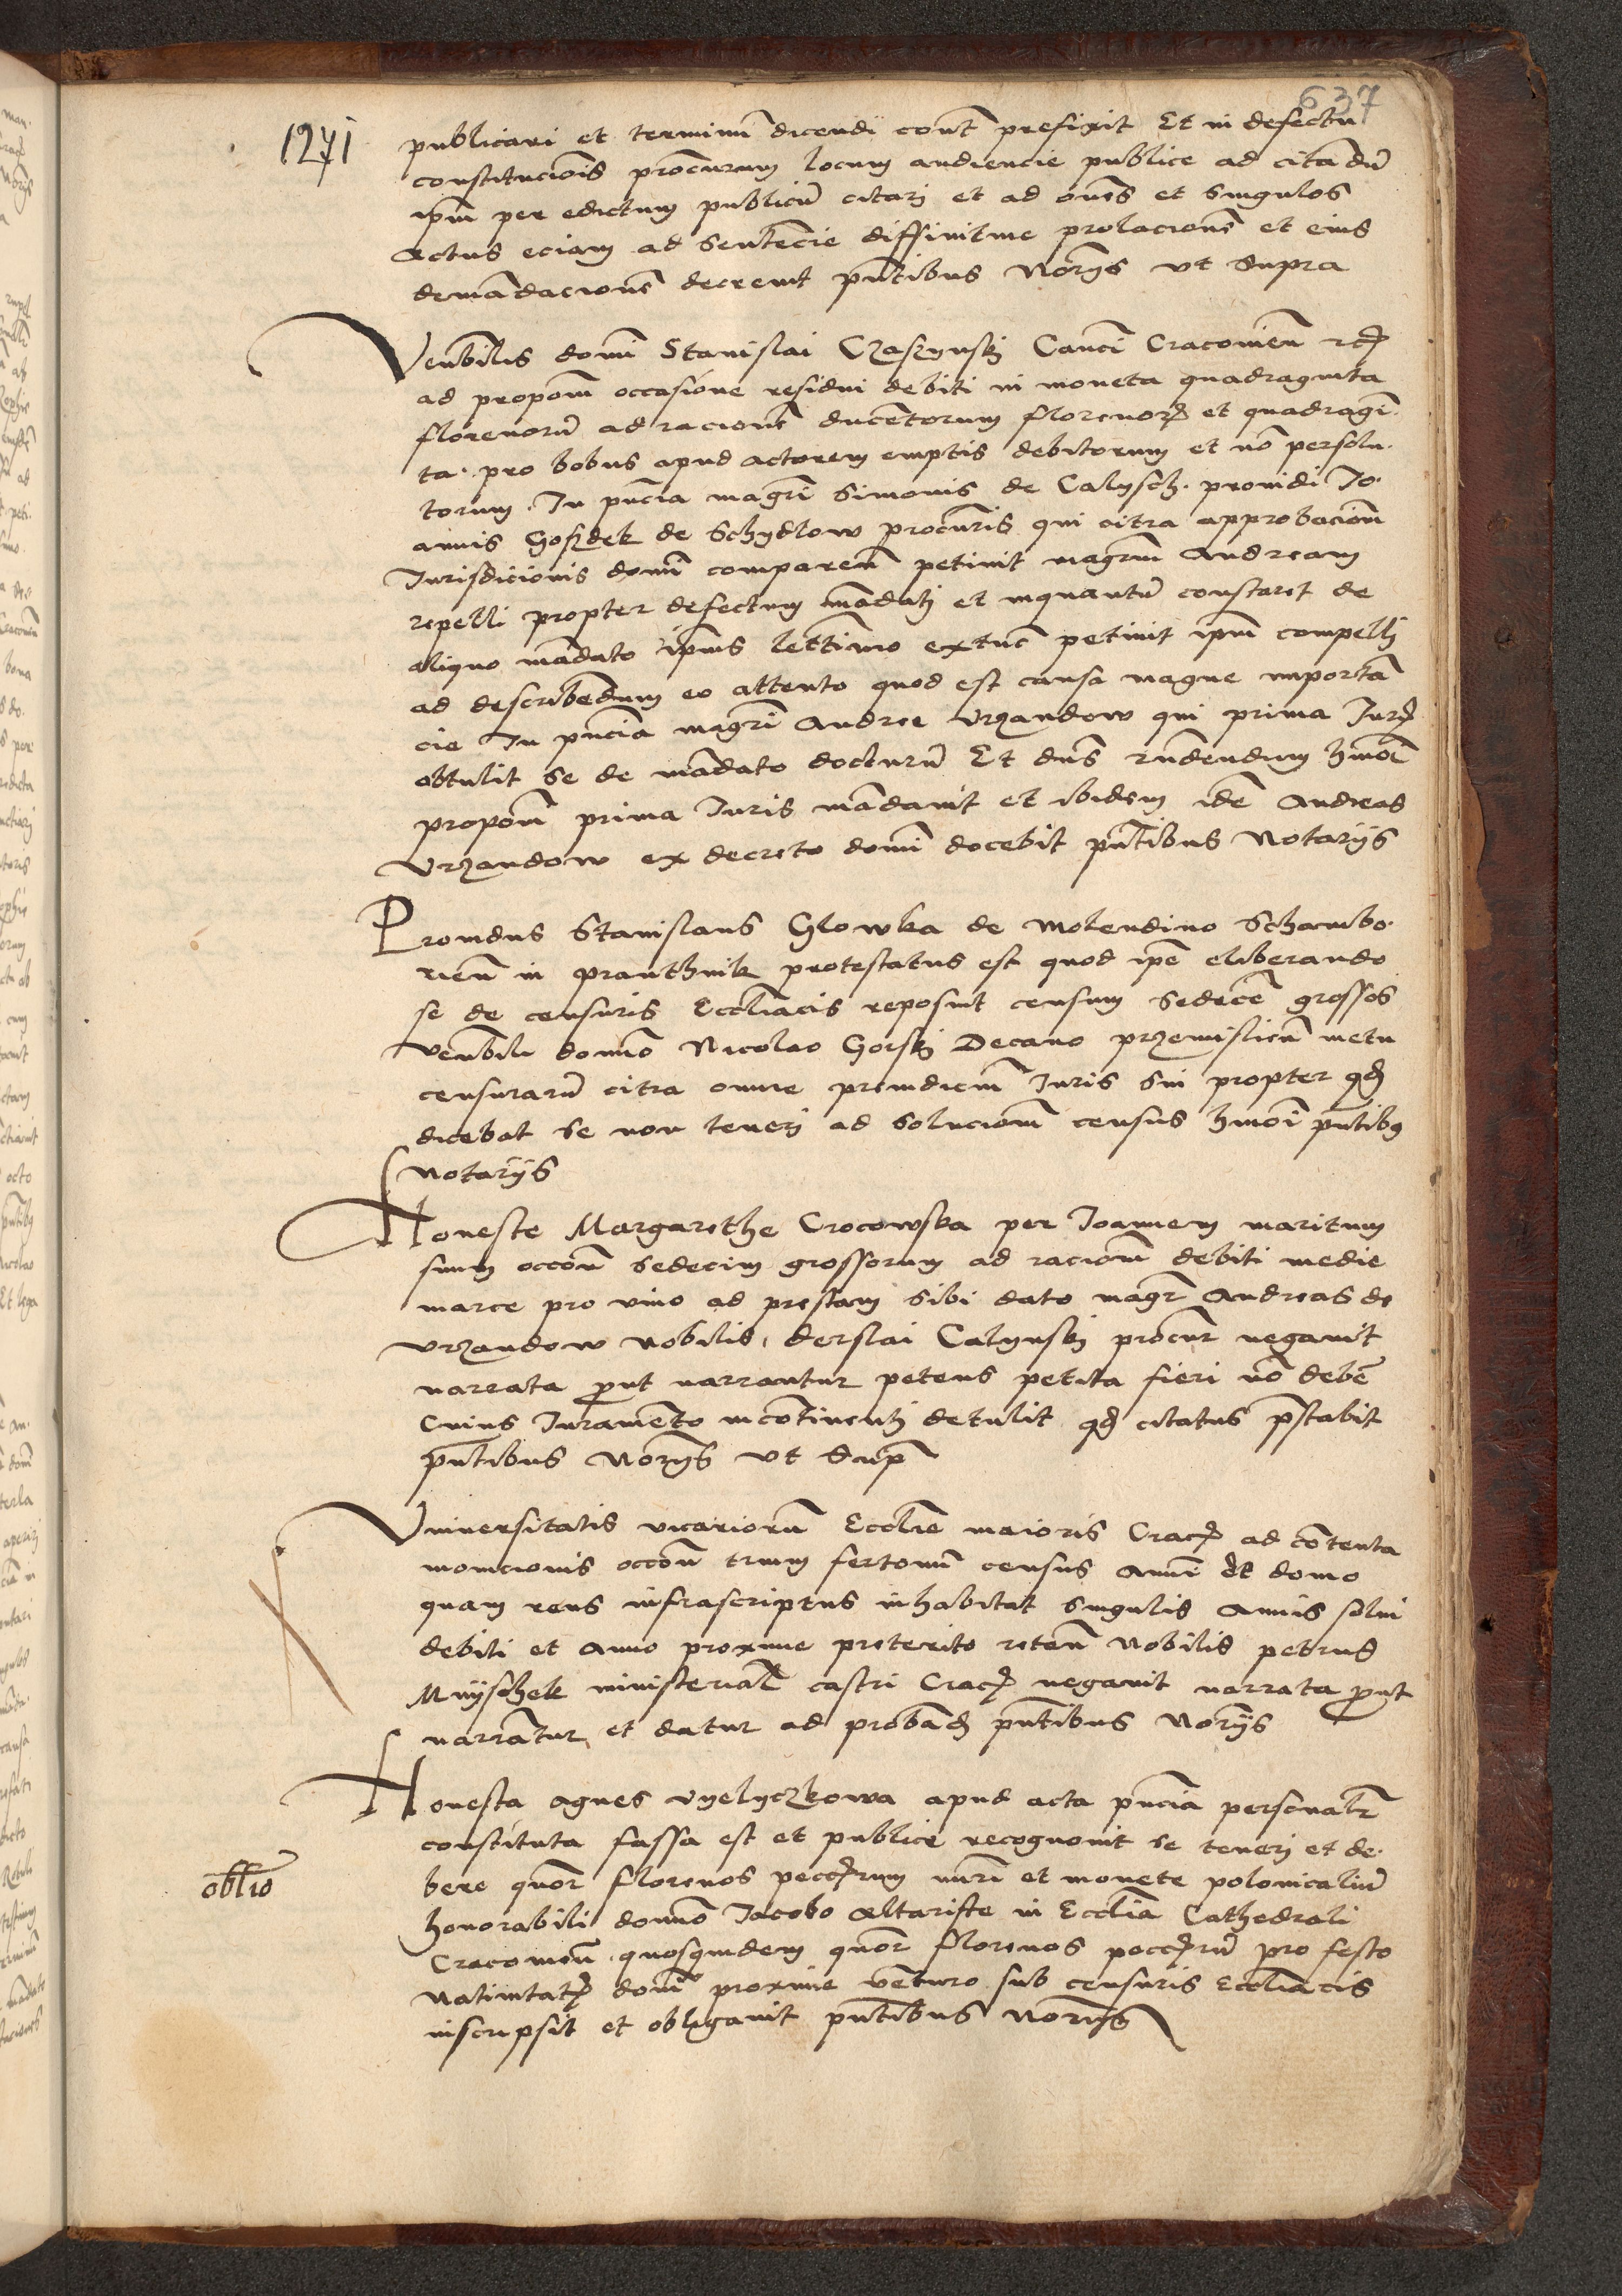 637
1271
publicari et terminũ dicendi cont̃ prefixit Et in defectu
constitucionis procurum locum audiencie publice ad citãdũ
ipm̃ per edictum publicũ citari et ad om̃es et singulos
Actus eciam ad sentẽcie diffinitiue prolacionẽ et eius
demãdacionẽ decreuit pñtibus Norijs vt supra
Venãbilis domĩ Stanislai Czaszynski Canci Cracouieñ
ad propoñ occasione residui debiti in moneta quadraginta
florenorũ ad racionẽ ducẽtorum florenorũ et quadragin
ta pro bobus apud actorem emptis debitorum et nõ persolu
torum In pñcia magri Simonis de Calysch prouidi Jo
annis Goszdek de Schydlow procuris qui citra approbacioñ
Jurisdicionis domĩ compareñ petiuit magrum Andream
repelli propter defectum mãdati et inquantũ constaret de
aliquo mãdato ipsius lettimo extũc petiuit ipm̃ compelli
ad describẽdum eo attento quod est causa magne importã
cie In pñcia magri Andree Vrzandow qui prima Jur
obtulit se de mãdato docturũ Et dñs hmõi
propoñ prima Juris mãdauit et ibidem idẽ Andreas
Vrzandow ex decreto domĩ docebit pñtibus Notarijs
Prouidus Stanislaus Glowka de Molendino Schambo
rieñ in pranthnik protestatus est quod ipẽ eliberando
se de censuris Eccliacis reposuit censum sedecẽ grossos
Venãbili domĩo Nicolao Gorski Decano przemislieñ metu
censurarũ citra omne preiudiciũ Juris sui propter qd
dicebat se non teneri ad solucioñ census hmõi pñtibus
Notarijs
Honeste Margarethe Crocowska per Joannem maritum
suum occoñ sedecim grossorum ad racioñ debiti medie
marce pro vino ad prestam sibi dato magr Andreas de
Vrzandow nobilis Derslai Calynski procur negauit
narrata prout narrantur petens petita fieri nõ debẽ
Cuius Juramento incõtinenti detulit qd citatus prestabit
pñtibus Norijs vt supra
Vniuersitatis vicariorũ Ecclie maioris Crac ad cõtenta
monicionis occoñ trium fertonũ census Anni de domo
quam reus infrascriptus inhabitat singulis Annis solui
debiti et Anno proxime preterito reteñ Nobilis petrus
Mnyschek ministerial castri Crac negauit narrata prout
narrãtur et datur ad probãd pñtibus Norijs
Honesta Agnes Vyelyczkowa apud acta pñcia personalr
constituta fassa est et publice recognouit se teneri et de
oblio
bere quor florenos peccrum nũri et monete polonicaliũ
honorabili domĩo Jacobo Altariste in Ecclia Cathedrali
Cracouieñ quosquidem quor florenos peccrũ pro festo
Natiuitatis domĩ proxime vẽturo sub censuris Eccliacis
inscripsit et obligauit pñtibus Norijs